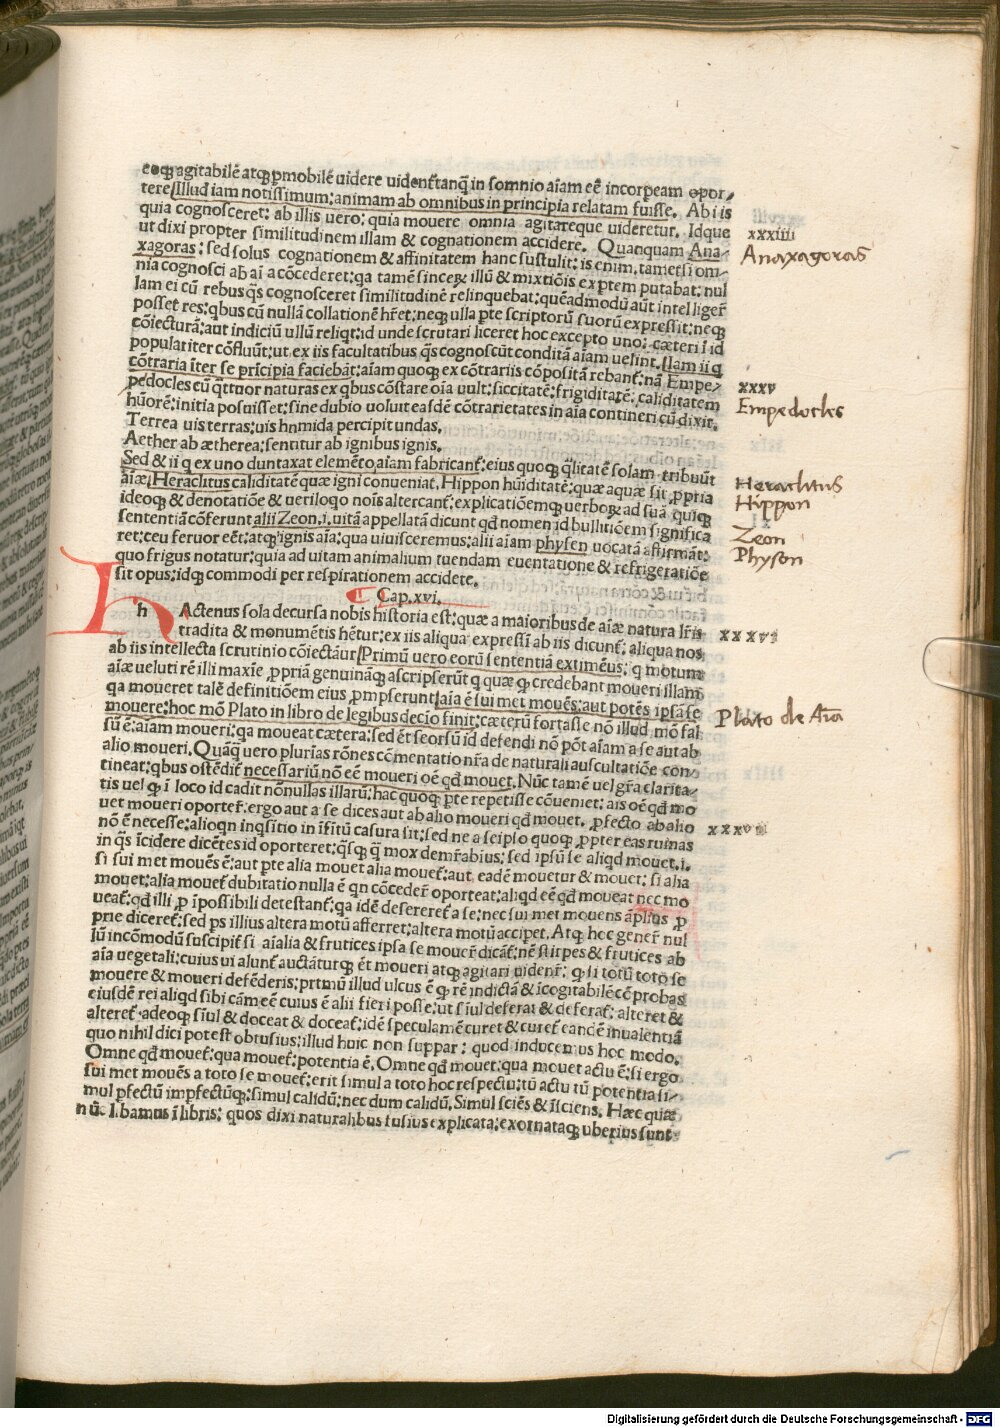 eoqꝫ agitabilē atqꝫ ꝑmobilē uidere uident̃ tanꝗ̃ in somnio aīam eē incorpeam opor-
tere Illud iam notissimum: animam ab omnibus in principia relatam fuisse. Ab iis
quia cognosceret: ab illis uero: quia mouere omnia agitareque uideretur. Idque
xxxiiii
ut dixi propter similitudinem illam & cognationem accidere. Quanquam Ana-
Anaxagoras
xagoras: sed solus cognationem & affinitatem hanc sustulit: is enim, tametsi om-
nia cognosci ab aīa cōcederet: qa tamē sinceꝝ illū & mixtiōis exꝑtem putabat: nul
lam ei cū rebus ꝗ̄s cognosceret similitudinē relinquebat: quēadmodū aūt intelliger̃
posset res: ꝗbus cū nullā collationē hr̄et: neqꝫ ulla ꝑte scriptorū suorū expressit: neqꝫ
cōiecturā: aut indiciū ullū reliꝗt: id unde scrutari liceret hoc excepto uno: cæteri ī id
populariter cōfluūt: ut ex iis facultatibus ꝗ̄s cognoscūt conditā aīam uelint. Nam ii ꝗ
cōtraria īter se prīcipia faciebāt: aīam quoqꝫ ex cōtrariis cōpositā rebant̃: nā Empe-
xxxv
pedocles cū ꝗ̄ttuor naturas ex ꝗbus cōstare oīa uult: siccitatē: frigiditatē: caliditatem
Empedocles
hūorē: initia posuisset: sine dubio uoluit easdē cōtrarietates in aīa contineri cū dixit.
Terrea uis terras: uis humida percipit undas.
Aether ab ætherea: sentitur ab ignibus ignis.
Sed & ii ꝗ ex uno duntaxat elemēto aīam fabricant̃: eius quoqꝫ ꝗ̄litatē solam tribuūt
aīæ Heraclitus caliditatē quæ igni conueniat. Hippon hūiditatē: quæ aquæ sit ꝓpria
Heraclitus
ideoqꝫ & denotatiōe & ueriloqo noīs altercant̃: explicatiōemqꝫ uerboꝝ ad suā quiqꝫ
Hippon
sententiā cōferunt alii Zeon .i. uitā appellatā dicunt qđ nomen id bullitiōem significa
Zeon
ret: ceu feruor eēt: atqꝫ ignis aīa: qua uiuisceremus: alii aīam physen uocatā affirmāt:
Physon
quo frigus notatur: quia ad uitam animalium tuendam euentatione & refrigeratiōe
sit opus: idqꝫ commodi per respirationem accidere.
Cap. xvi.
h Actenus sola decursa nobis historia est: quæ a maioribus de aīæ natura lr̄is
xxxvi
tradita & monumētis hētur: ex iis aliqua expressi ab iis dicunt̃: aliqua nos
ab iis intellecta scrutinio cōiectāur Primū uero eorū sententiā extimēus: ꝗ motum
aīæ ueluti rē illi maxīe ꝓpriā genuināqꝫ ascripserūt ꝗ quæ ꝙ credebant moueri illam
qa moueret talē definitiōem eius ꝓmpserunt aīa ē sui met mouēs: aut potēs ipsā se
mouere: hoc mō Plato in libro de legibus decio finit: cæterū fortasse nō illud mō fal
Plato de Aīa
sū ē: aīam moueri: qa moueat cætera: sed ēt seorsū id defendi nō pōt aīam a se aut ab
alio moueri. Quāꝗ̄ uero plurias rōnes cōmentatio nr̄a de naturali auscultatiōe con-
tineat: ꝗbus ostēdit̃ necessariū nō eē moueri oē qđ mouet. Nūc tamē uel gr̄a clarita-
tis uel ꝙ ī loco id cadit nōnullas illarū: hac quoqꝫ ꝑte repetisse cōueniet: ais oē qđ mo
uet moueri oportet: ergo aut a se dices aut ab alio moueri qđ mouet. ꝓfecto ab alio
xxxvii
nō ē necesse: alioqn inꝗsitio in īfitū casura sit: sed ne a seipso quoqꝫ ꝓpter eas ruinas
in ꝗ̄s īcidere dicētes id oporteret: ꝗ̄sqꝫ ꝗ̄ mox demr̄abius: sed ipsū se aliqd mouet .i.
si sui met mouēs ē: aut ꝑte alia mouet alia mouet̃: aut eadē mouetur & mouet: si alia
mouet: alia mouet̃ dubitatio nulla ē qn cōceder̃ oporteat: aliqđ eē qđ moueat nec mo
ueat̃: qđ illi ꝓ īpossibili detestant̃: qa idē desereret̃ a se: nec sui met mouens āplius ꝓ
prie diceret̃: sed ꝑs illius altera motū afferret: altera motū accipet. Atqꝫ hoc gener̃ nul
lū incōmodū suscipit̃ si aīalia & frutices ipsa se mouer̃ dicāt̃: nē stirpes & frutices ab
aīa uegetali: cuius ui alunt̃ auctāturqꝫ ēt moueri atqꝫ agitari uident̃: ꝙ si totū toto se
mouere & moueri defēderis: prīmū illud ulcus ē ꝙ rē indictā & īcogitabilē cōprobas
eiusdē rei aliqd sibi cām eē cuius ē alii fieri posse: ut sīul deferat & deferat̃: alteret &
alteret̃: adeoqꝫ sīul & doceat & doceat̃: idē speculamē curet & curet̃ eandē inualentiā
quo nihil dici potest obtusius: illud huic non suppar: quod inducemus hoc modo.
Omne qđ mouet̃: qua mouet̃: potentia ē. Omne qđ mouet: qua mouet actu ē: si ergo
sui met mouēs a toto se mouet̃: erit simul a toto hoc respectu: tū actu tū potentia si-
mul ꝑfectū imꝑfectūqꝫ: simul calidū: nec dum calidū. Simul sciēs & īsciens. Hæc quæ
nūc libamus ī libris: quos dixi naturalibus fusius explicata: exornataqꝫ uberius sunt
Digitalisierung gefördert durch die Deutsche Forschungsgemeinschaft - DFG